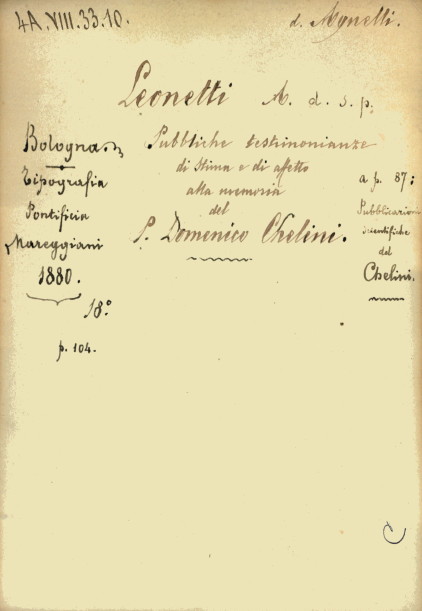 4A.VIII.33.10.
d. Agnelli.
Leonetti A. d. s. p.
Pubbliche testimonianze
di stima e di affetto
alla memoria
del
P. Domenico Chelini.
Bologna.
Tipografia
Pontificia
Mareggiani
1880.
18.°
p. 104.
a p. 87:
Pubblicazioni
scientifiche
del
Chelini.